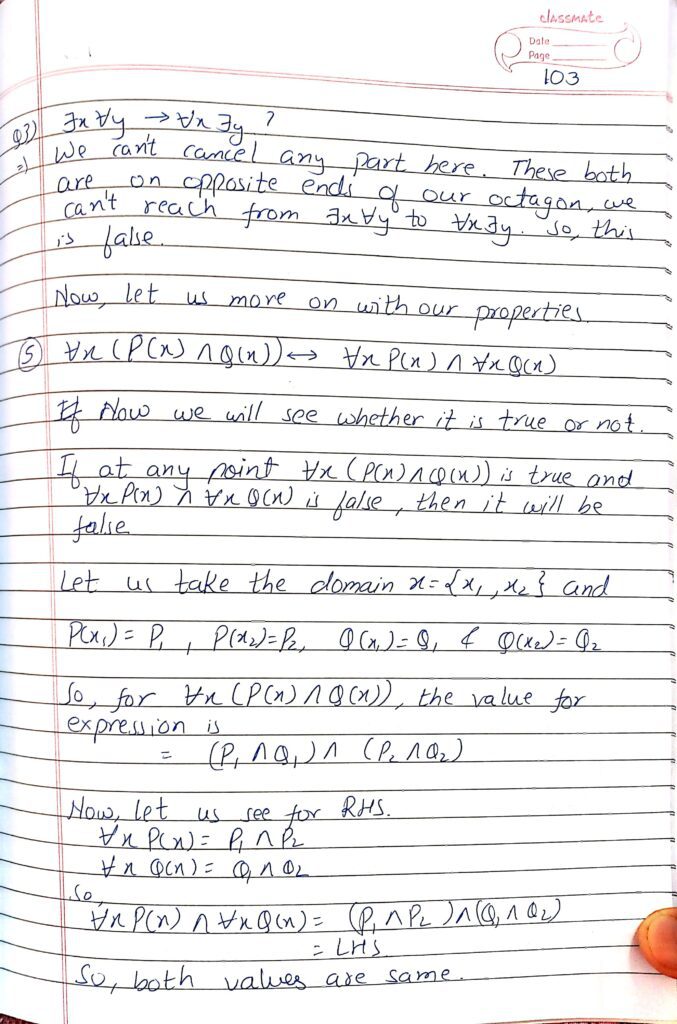 classmate
Date
Page
103
Q3) ∃x ∀y → ∀x ∃y ?
=) We can't cancel any part here. These both
are on opposite ends of our octagon, we
can't reach from ∃x∀y to ∀x∃y. So, this
is false.
Now, let us more on with our properties.
⑤ ∀x (P(x) ∧ Q(x)) ↔ ∀x P(x) ∧ ∀x Q(x)
Now we will see whether it is true or not.
If at any point ∀x (P(x) ∧ Q(x)) is true and
∀x P(x) ∧ ∀x Q(x) is false, then it will be
false
Let us take the domain x = {x₁, x₂} and
P(x₁) = P₁, P(x₂) = P₂, Q(x₁) = Q₁ & Q(x₂) = Q₂
So, for ∀x (P(x) ∧ Q(x)), the value for
expression is
= (P₁ ∧ Q₁) ∧ (P₂ ∧ Q₂)
Now, let us see for RHS.
∀x P(x) = P₁ ∧ P₂
∀x Q(x) = Q₁ ∧ Q₂
So,
∀x P(x) ∧ ∀x Q(x) = (P₁ ∧ P₂) ∧ (Q₁ ∧ Q₂)
= LHS
So, both values are same.